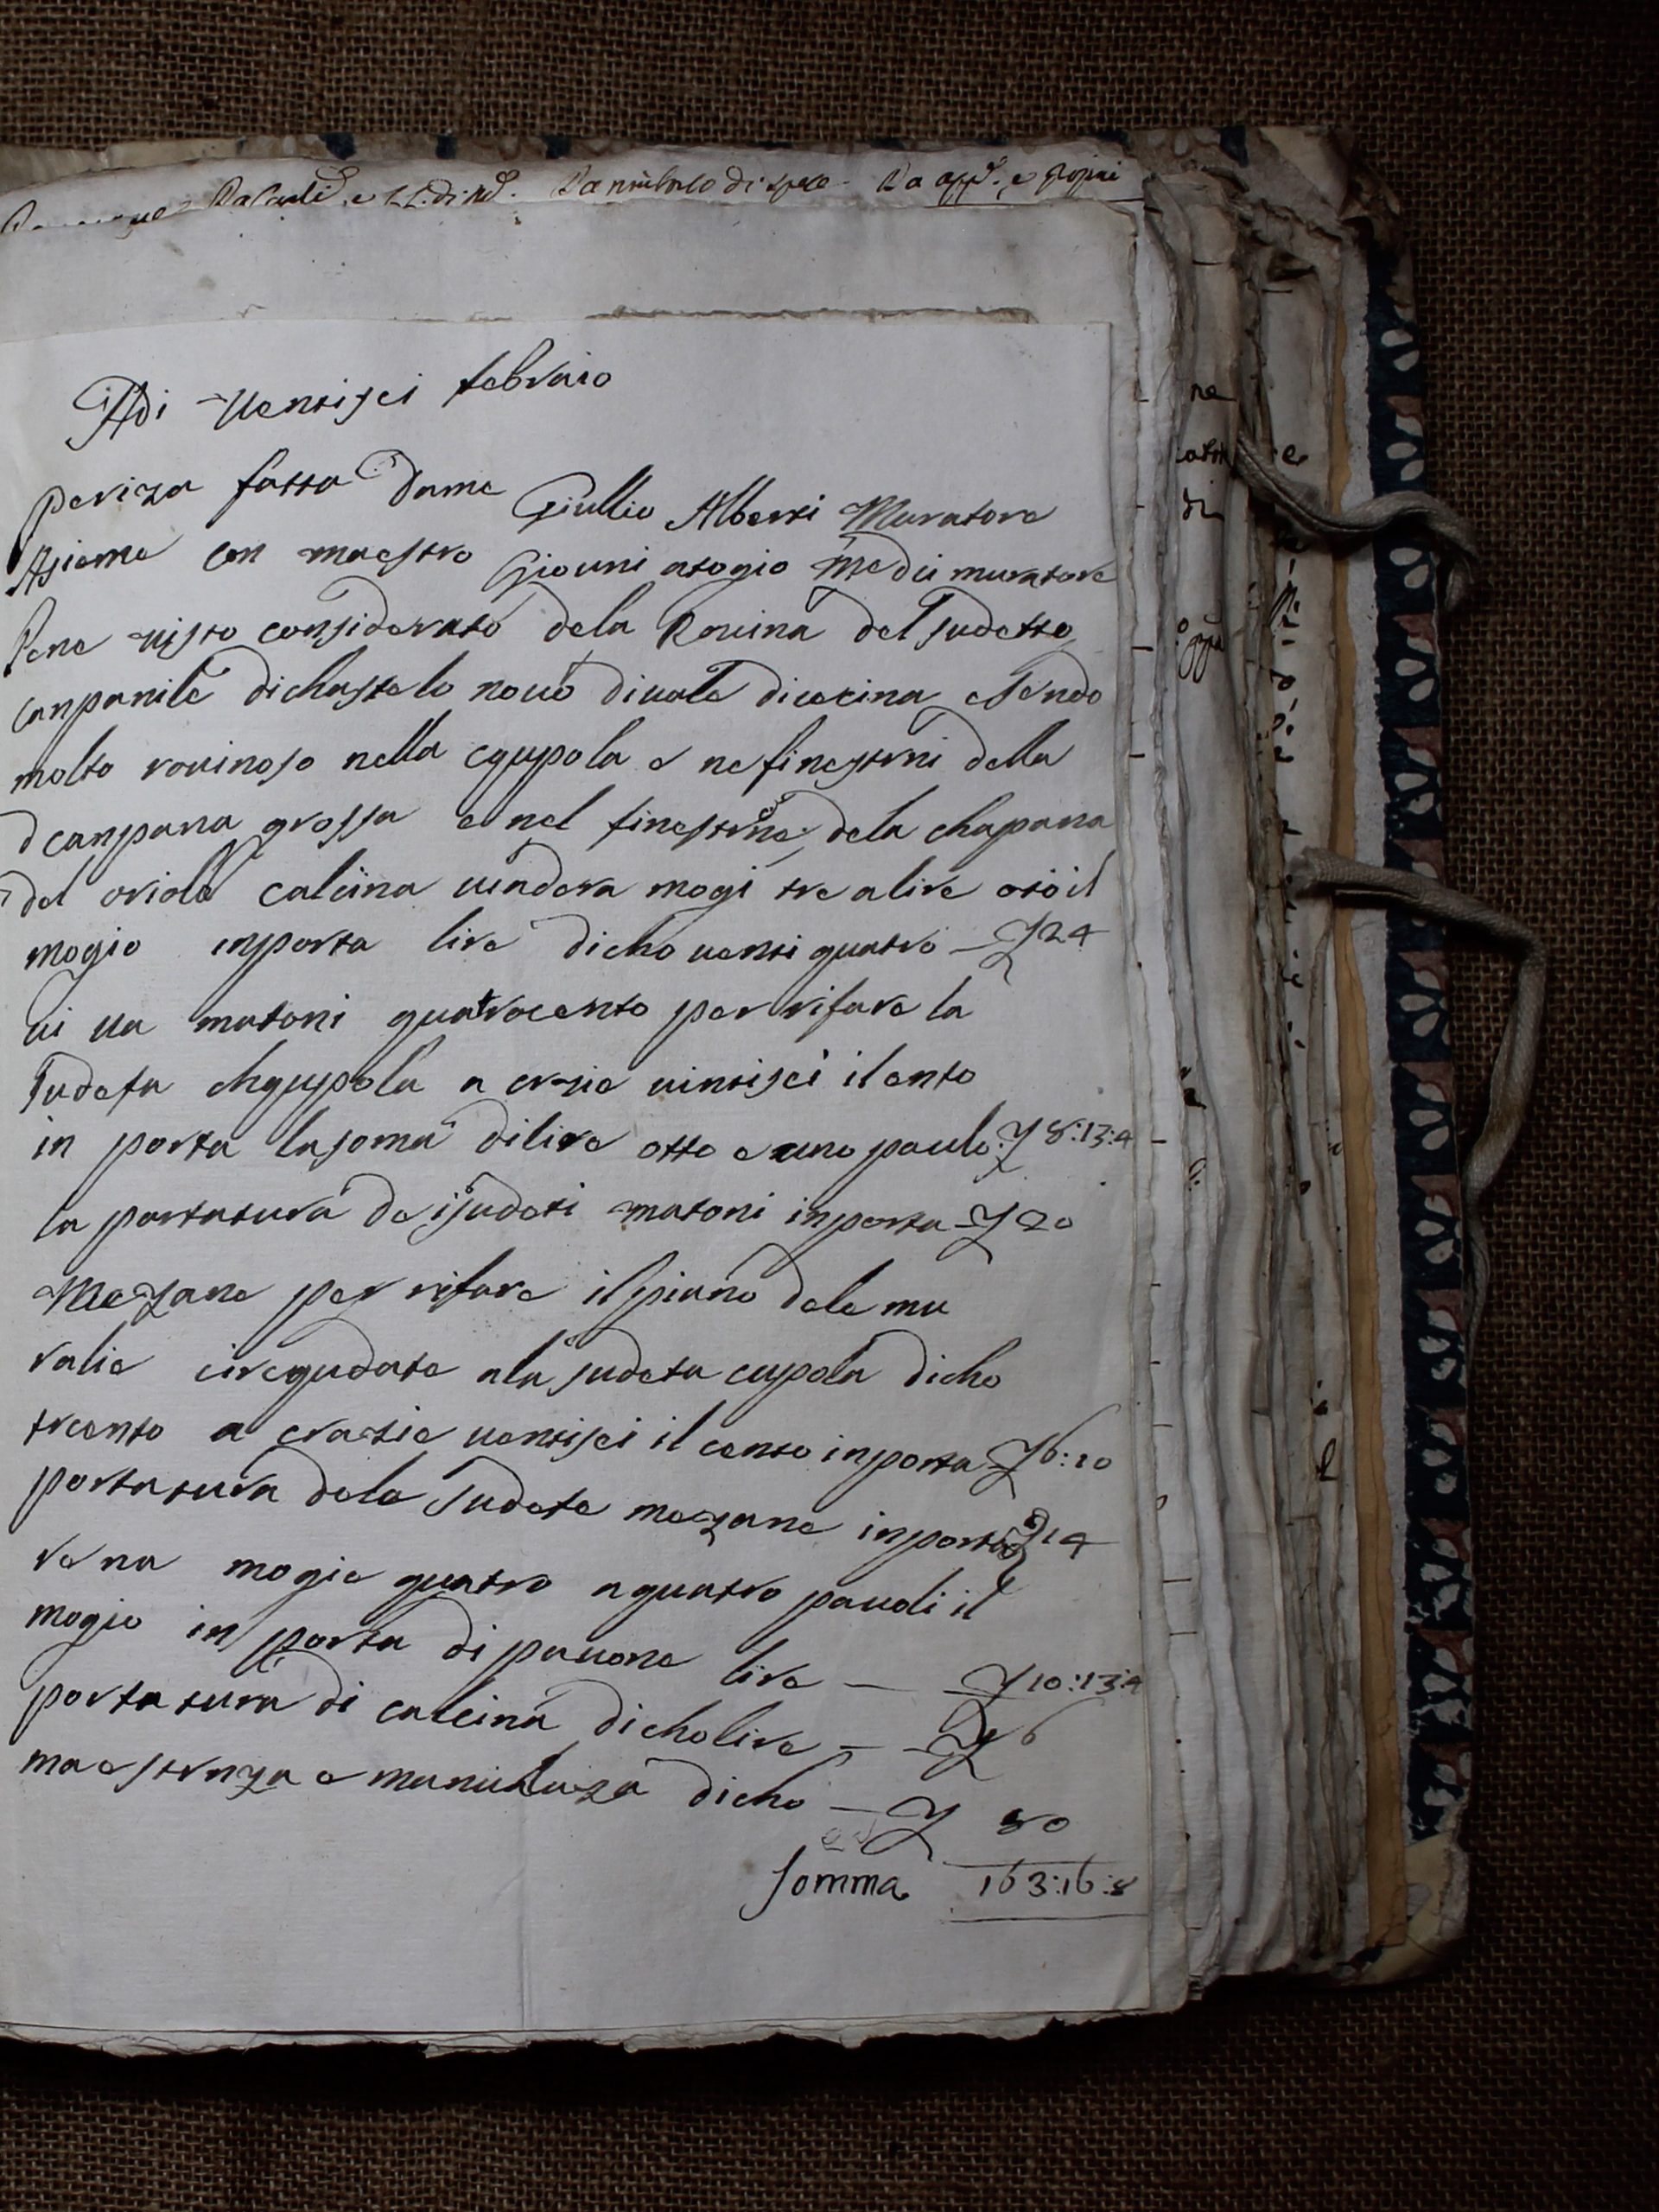 Adi Ventisei febraio
periza fatta dame Giullio Alberti Muratore
Asieme con maestro Giouni
muratore
bene uisto considerato dela Rouina del sudetto
canpanile dichastelo nouo diuale dicecina esendo
molto rouinoso nella cqupola e ne finestrni della
canpana grossa e nel finestrne dela chapana
del oriolo calcina uiuadera mogi tre alire otò il
mogio inporta lire dicho uenti quatro — £ 24
ui ua matoni quatrocento per rifare la
sudeta chqupola a crzie uintisei il ento
in porta lasoma di lire otto e uno paulo £ 8:13:4
la portatura de i sudeti matoni inporta £ 20
Mezane per rifare il piano dele mu
ralie ciregudate ala sudeta cupola dicho
trcento a crazie uentisei il cento inporta £ 6:10
portatura dele sudete mezane inporta £ 14
rena mogie quatro a quatro pauoli il
mogio in porta di pauone lire — £ 10:13:4
portatura di calcina dicho lire — £ 6
maestrnza e manualuza dicho — £ 80
Somma 163:16:8